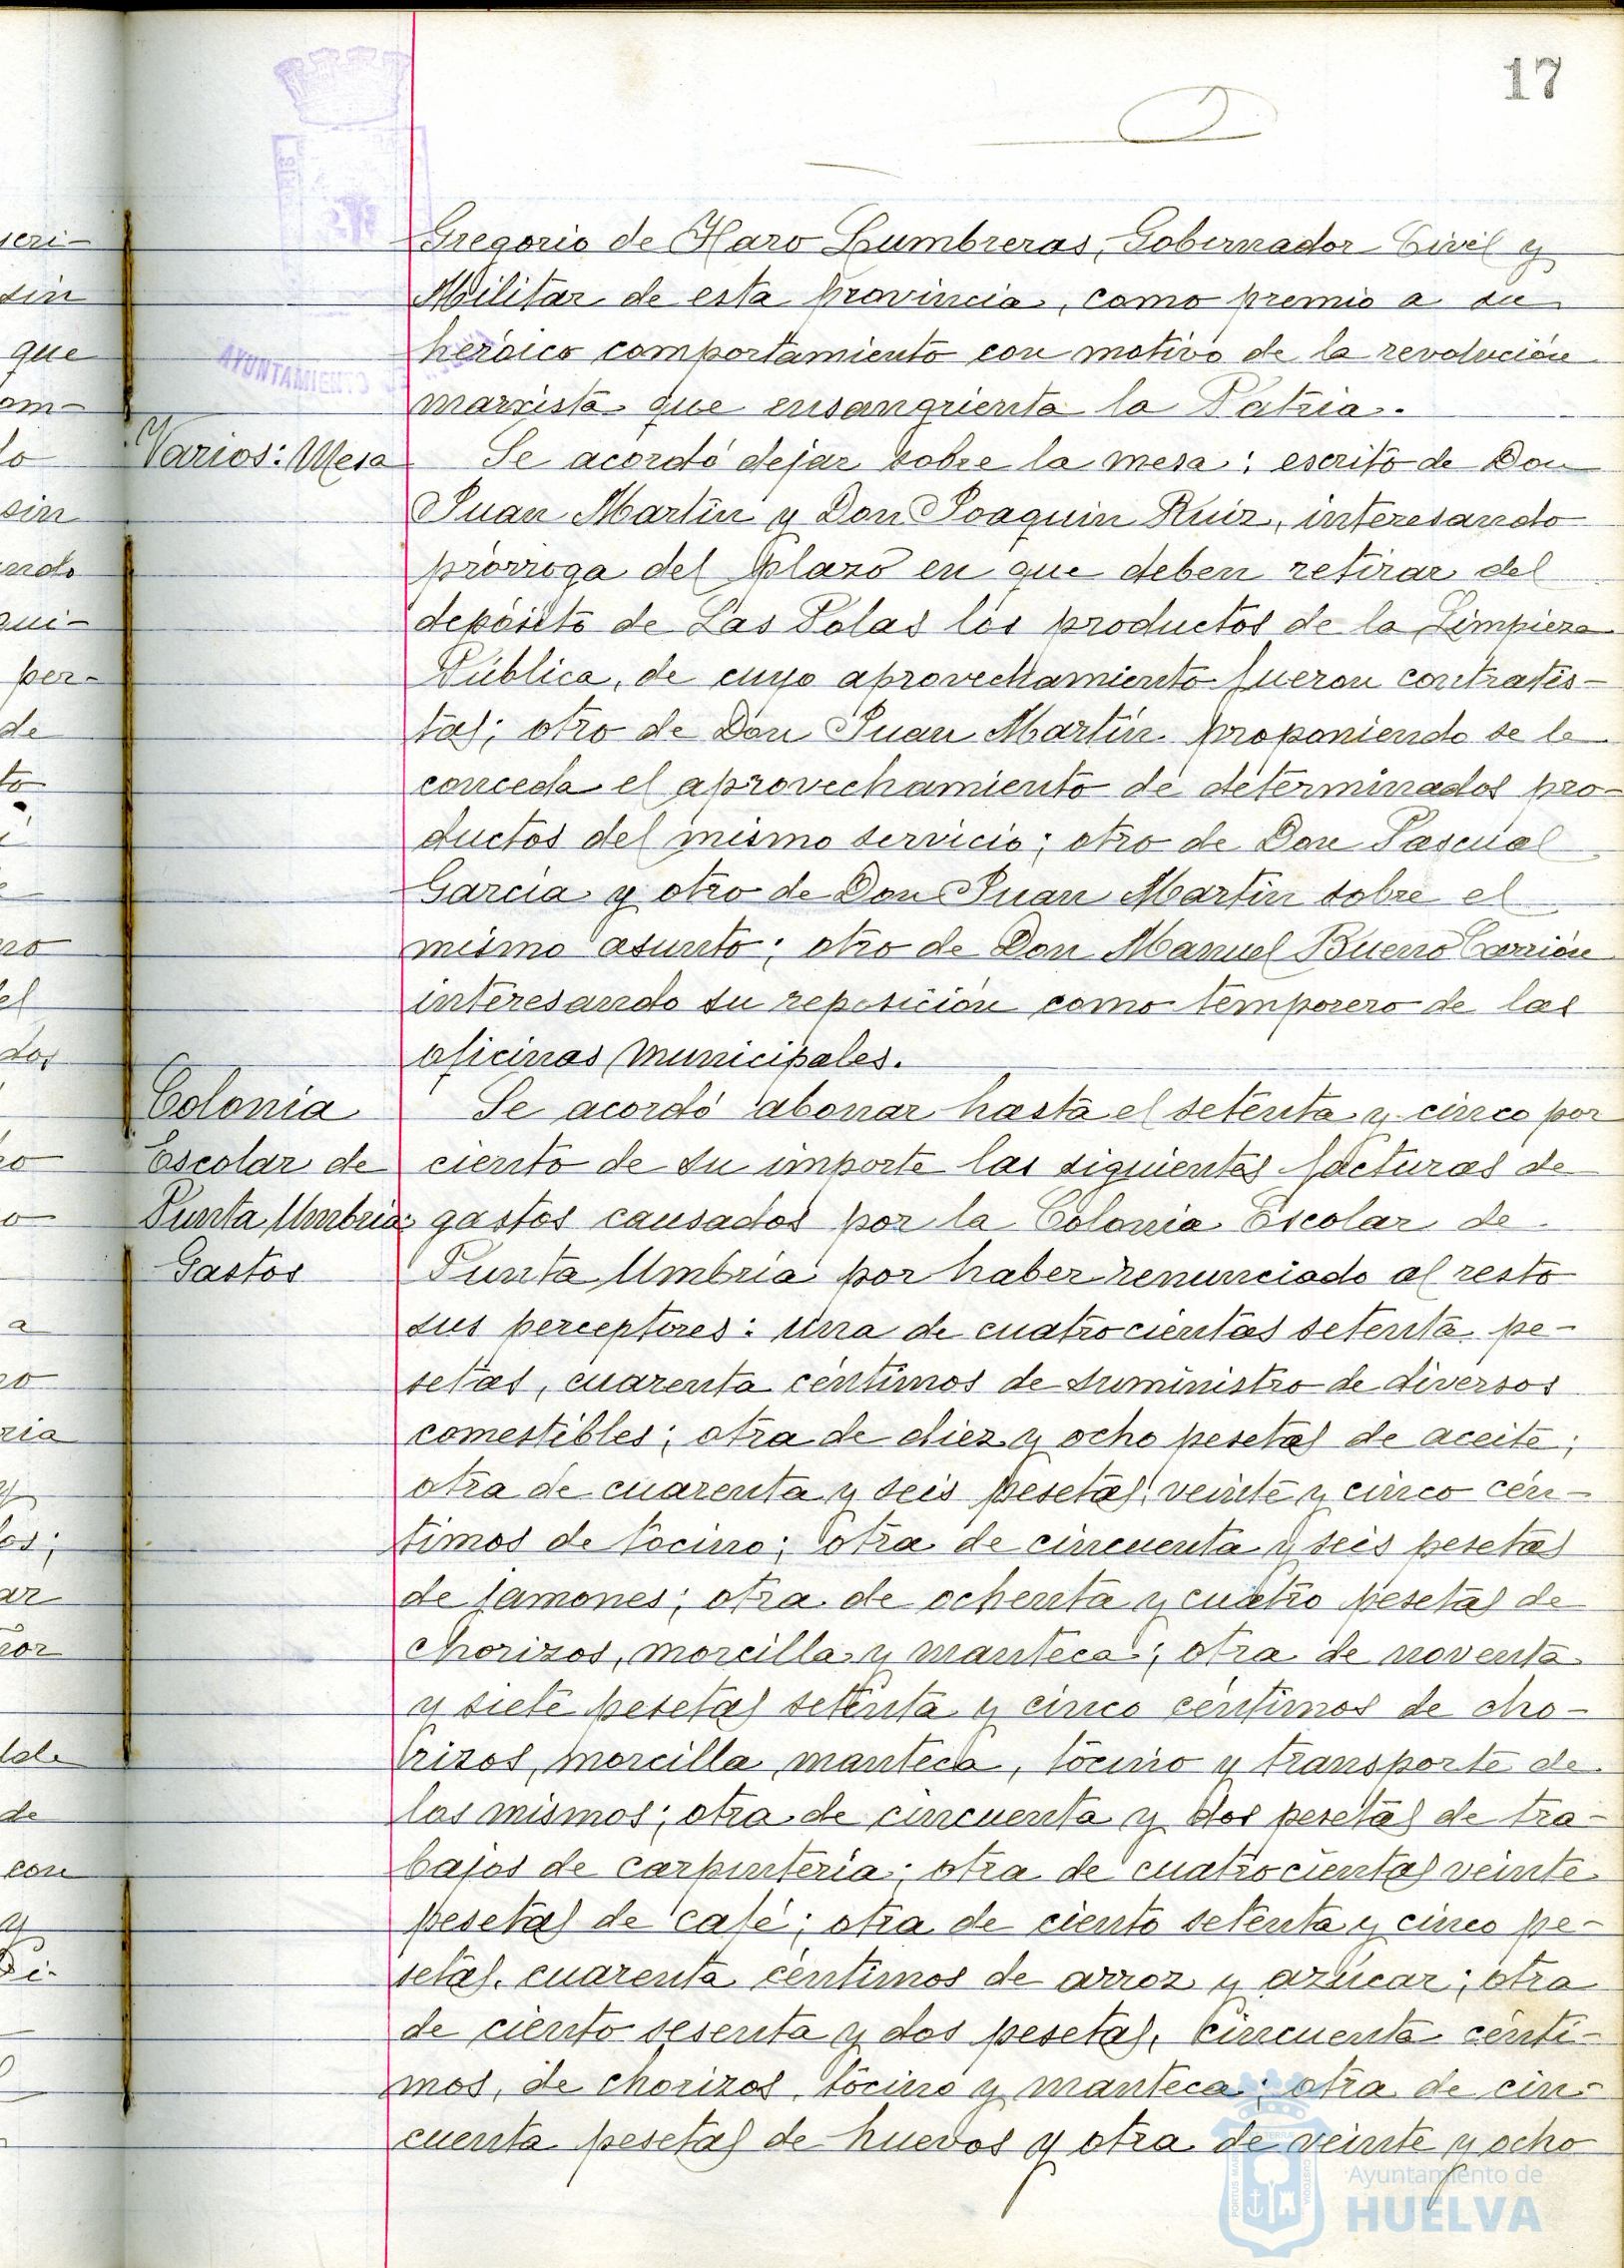 17
Gregorio de Haro Lumbreras, Gobernador Civil y
Militar de esta provincia, como premio a su
heróico comportamiento con motivo de la revolución
marxista que ensangrienta la Patria.
Varios: Mesa
Se acordó dejar sobre la mesa: escrito de Don
Juan Martín y Don Joaquin Ruiz, interesando
prórroga del plazo en que deben retirar del
depósito de Las Polas los productos de la Limpieza
Pública, de cuyo aprovechamiento fueron contratis-
tas; otro de Don Juan Martín proponiendo se le
conceda el aprovechamiento de determinados pro-
ductos del mismo servicio; otro de Don Pascual
García y otro de Don Juan Martín sobre el
mismo asunto; otro de Don Manuel Bueno Carrión
interesando su reposición como temporero de las
oficinas municipales.
Colonia
Escolar de
Punta Umbria:
Gastos
Se acordó abonar hasta el setenta y cinco por
ciento de su importe las siguientes facturas de
gastos causados por la Colonia Escolar de
Punta Umbría por haber renunciado al resto
sus perceptores: Una de cuatrocientas setenta pe-
setas, cuarenta céntimos de suministro de diversos
comestibles; otra de diez y ocho pesetas de aceite;
otra de cuarenta y seis pesetas, veinte y cinco cén-
timos de tocino; otra de cincuenta y seis pesetas
de jamones; otra de ochenta y cuatro pesetas de
chorizos, morcilla y manteca; otra de noventa
y siete pesetas setenta y cinco céntimos de cho-
rizos, morcilla, manteca, tocino y transporte de
los mismos; otra de cincuenta y dos pesetas de tra-
bajos de carpintería; otra de cuatrocientas veinte
pesetas de café; otra de ciento setenta y cinco pe-
setas, cuarenta céntimos de arroz y azúcar; otra
de ciento sesenta y dos pesetas, cincuenta cénti-
mos, de chorizos, tocino y manteca; otra de cin-
cuenta pesetas de huevos y otra de veinte y ocho
AYUNTAMIENTO DE
Ayuntamiento de
HUELVA
seri-
sin
que
om-
lo
sin
endo
qui-
per-
de
to
no
el
dos
a
ria
ar
de
con